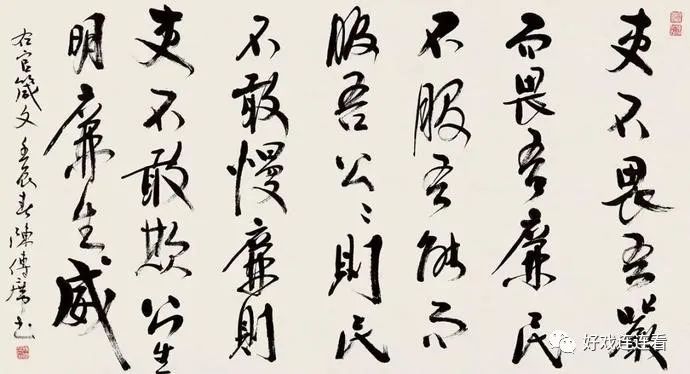 吏不畏吾嚴
而畏吾廉民
不服吾能而
服吾公〻則民
不敢慢廉則
吏不敢欺公生
明廉生威
右官箴文壬辰春陳傳席书
好戏连连看